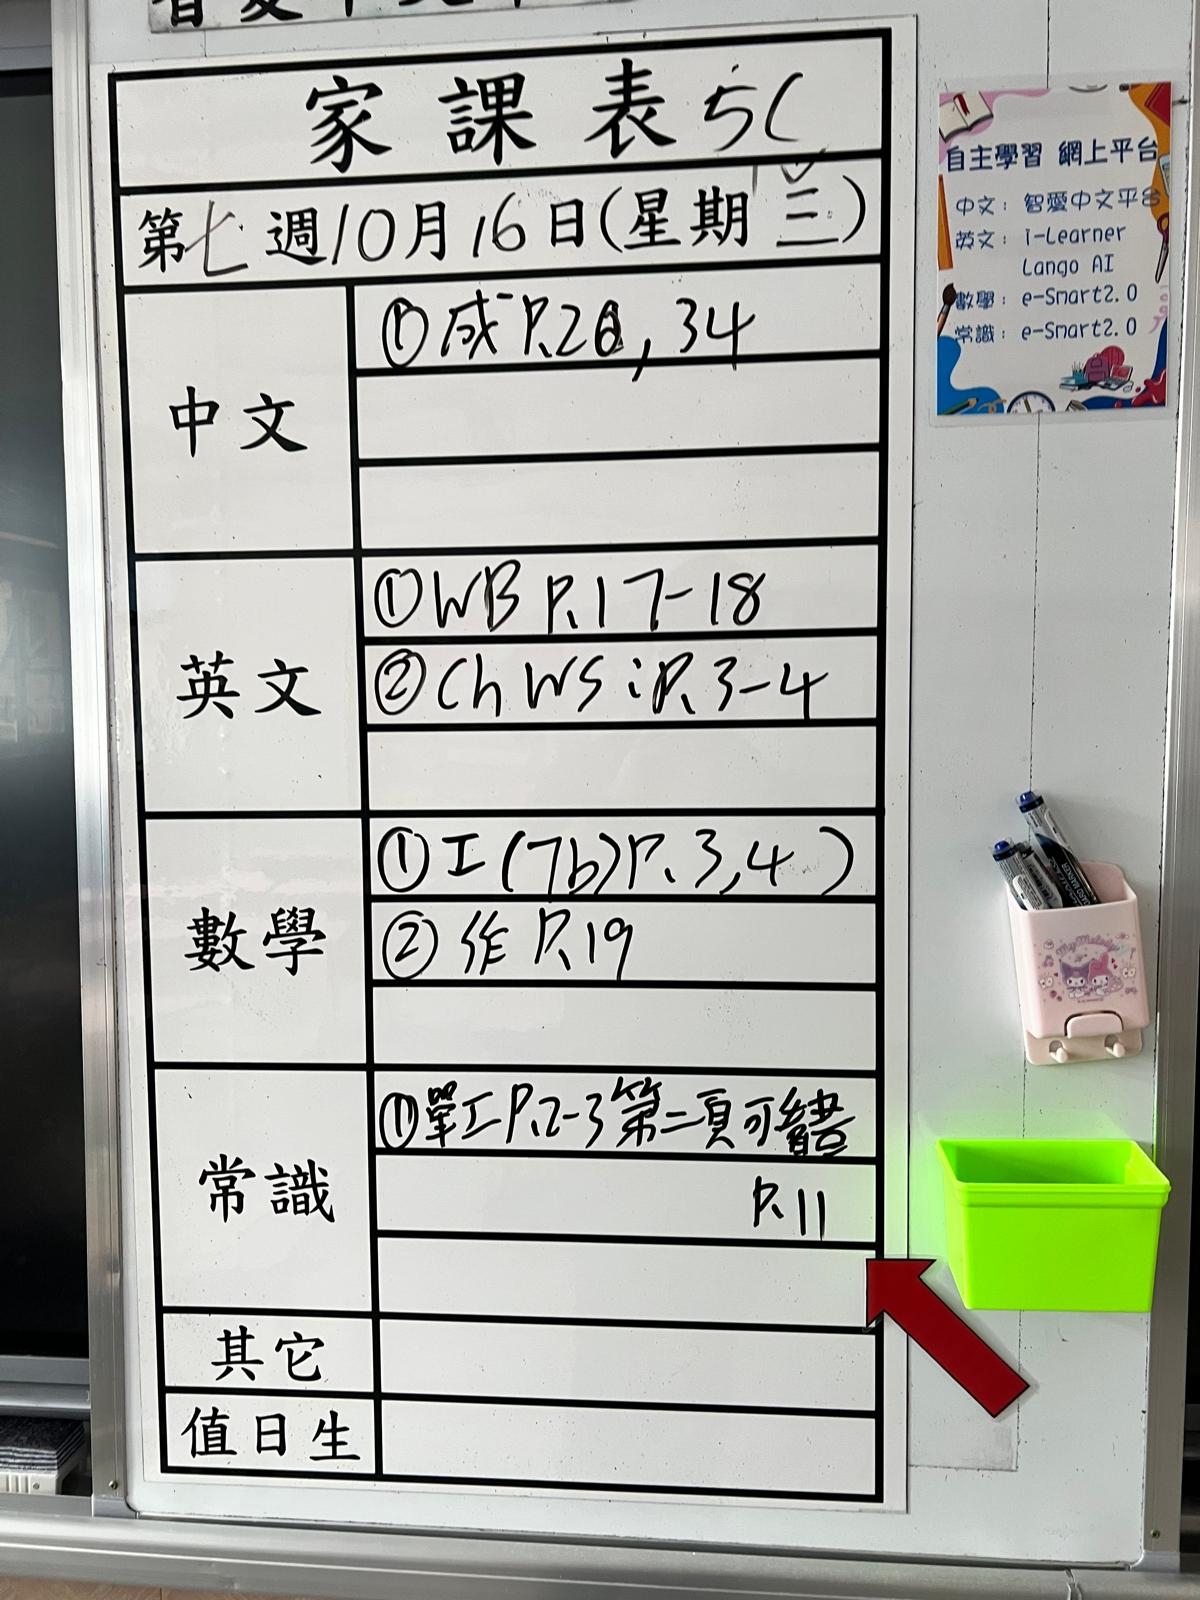 家課表 5C
第七週10月16日(星期三)
中文
① 成 P.20, 34
英文
① WB P.17-18
② Ch WS: P.3-4
數學
① 工(7b) P.3,4)
② 作 P.19
常識
① 單工 P.2-3 第二頁可
P.11
其它
值日生
自主學習 網上平台
中文: 智愛中文平台
英文: i-Learner
Lango AI
數學: e-Smart2.0
常識: e-Smart2.0
My Melody